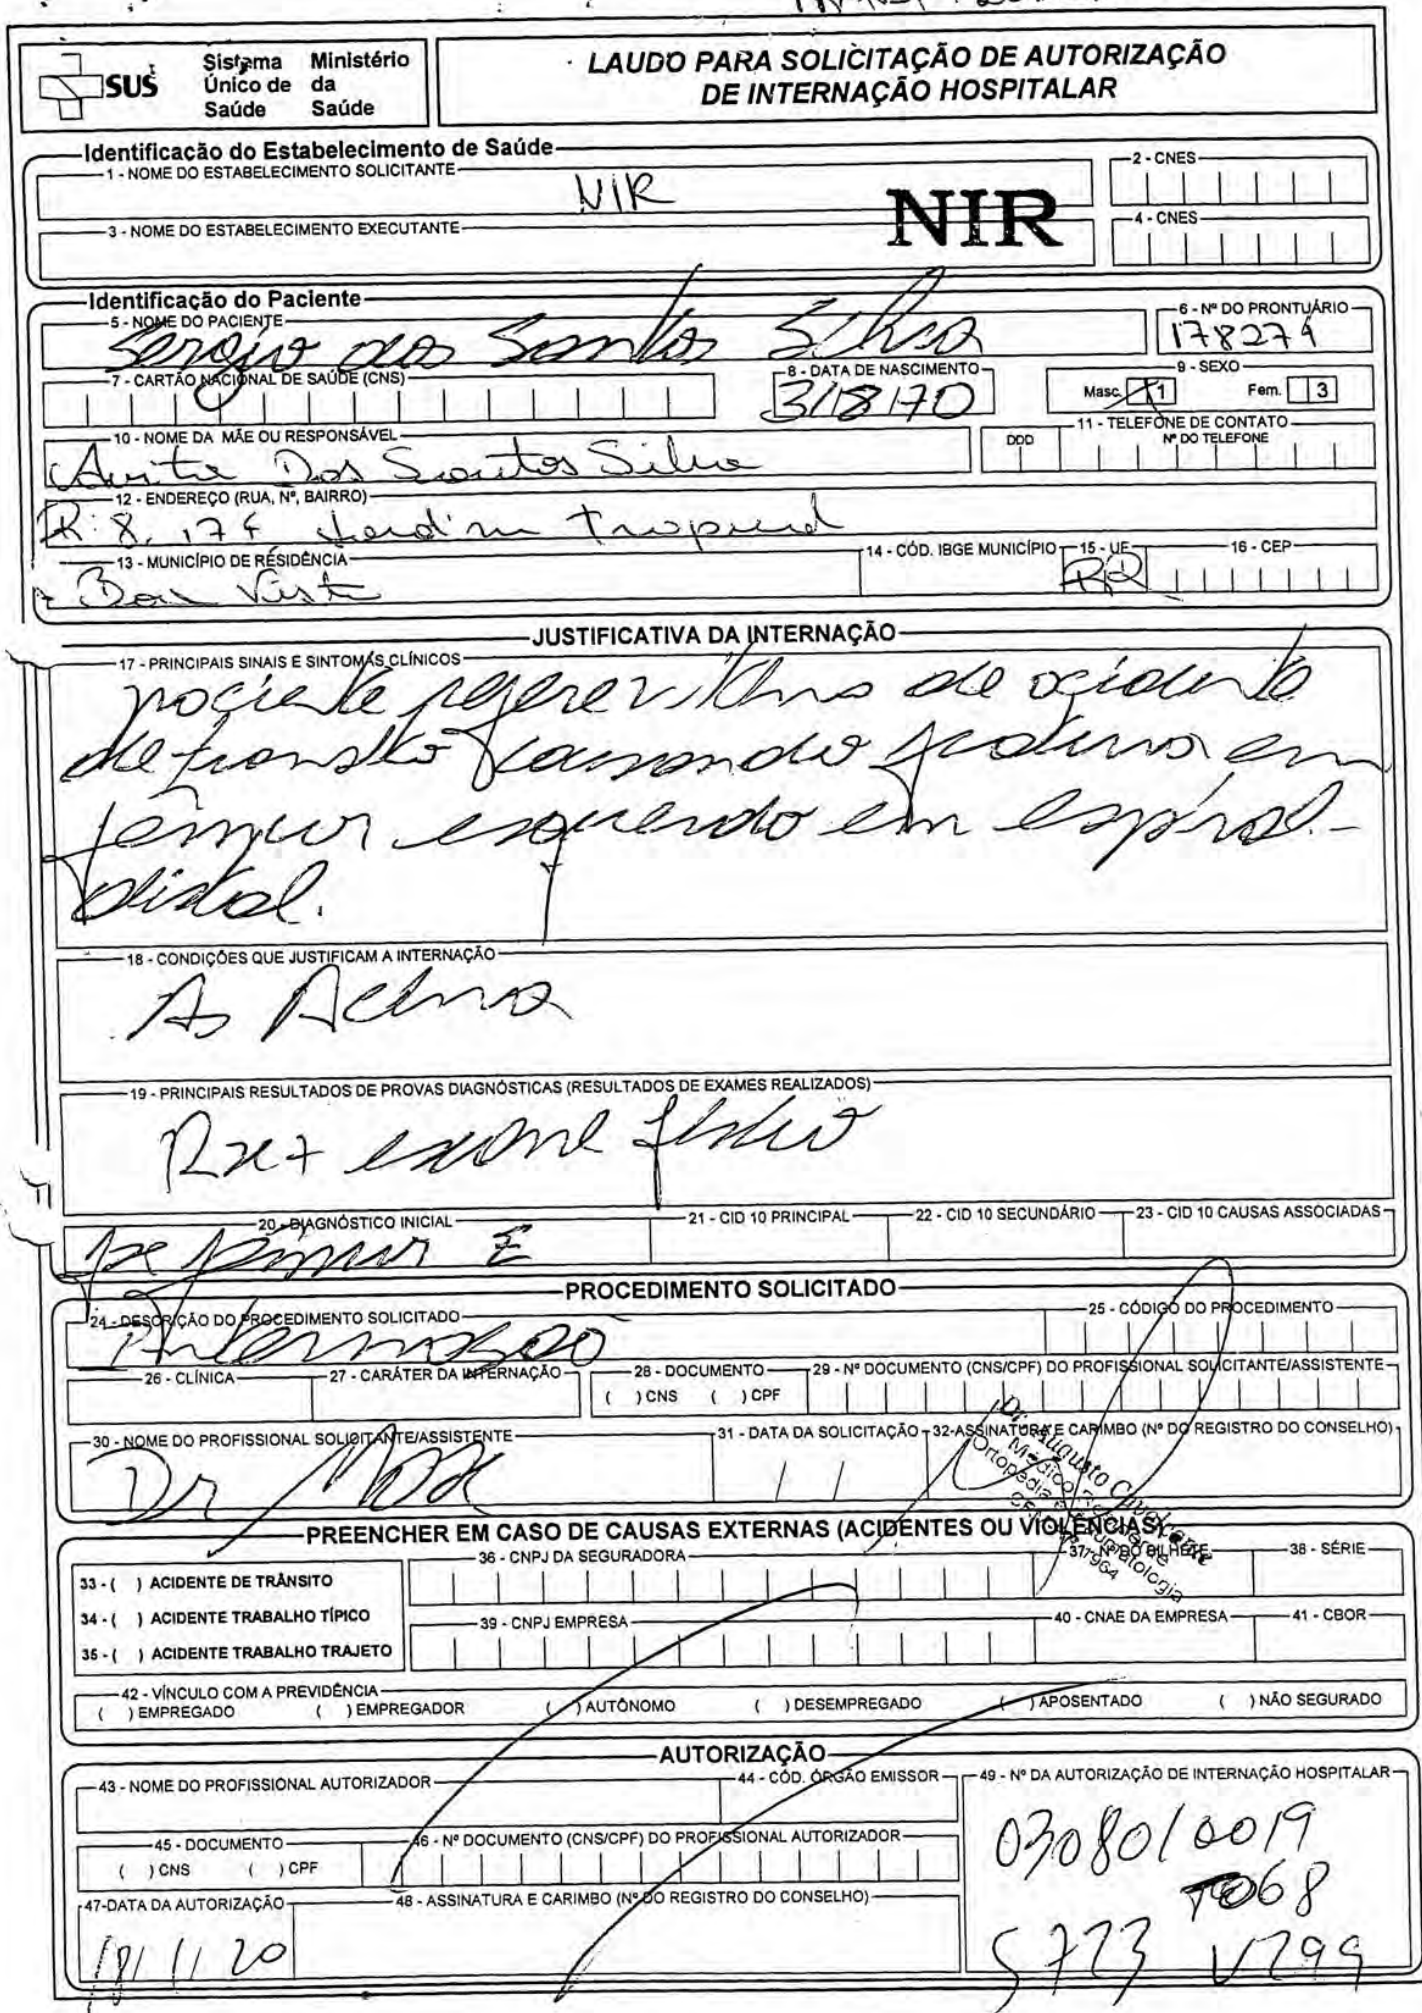 SUS
Sistema Único de Saúde
Ministério da Saúde
LAUDO PARA SOLICITAÇÃO DE AUTORIZAÇÃO
DE INTERNAÇÃO HOSPITALAR
Identificação do Estabelecimento de Saúde
1 - NOME DO ESTABELECIMENTO SOLICITANTE
NIR
NIR
2 - CNES
3 - NOME DO ESTABELECIMENTO EXECUTANTE
4 - CNES
Identificação do Paciente
5 - NOME DO PACIENTE
Sergio dos Santos Silva
6 - Nº DO PRONTUÁRIO
178274
7 - CARTÃO NACIONAL DE SAÚDE (CNS)
8 - DATA DE NASCIMENTO
3/8/70
9 - SEXO
Masc. 1 Fem. 3
10 - NOME DA MÃE OU RESPONSÁVEL
Dos Santos Silva
11 - TELEFONE DE CONTATO
DDD Nº DO TELEFONE
12 - ENDEREÇO (RUA, Nº, BAIRRO)
R: 8, 174 Jardim tropical
13 - MUNICÍPIO DE RESIDÊNCIA
Boa Vista
14 - CÓD. IBGE MUNICÍPIO
15 - UF
RR
16 - CEP
JUSTIFICATIVA DA INTERNAÇÃO
17 - PRINCIPAIS SINAIS E SINTOMAS CLÍNICOS
paciente refere vitima de acidente
de transito causando fratura em
femur esquerdo em espiral
distal.
18 - CONDIÇÕES QUE JUSTIFICAM A INTERNAÇÃO
As Acima
19 - PRINCIPAIS RESULTADOS DE PROVAS DIAGNÓSTICAS (RESULTADOS DE EXAMES REALIZADOS)
Rx + exame fisico
20 - DIAGNÓSTICO INICIAL
fx femur E
21 - CID 10 PRINCIPAL
22 - CID 10 SECUNDÁRIO
23 - CID 10 CAUSAS ASSOCIADAS
PROCEDIMENTO SOLICITADO
24 - DESCRIÇÃO DO PROCEDIMENTO SOLICITADO
Internação
25 - CÓDIGO DO PROCEDIMENTO
26 - CLÍNICA
27 - CARÁTER DA INTERNAÇÃO
28 - DOCUMENTO
( ) CNS ( ) CPF
29 - Nº DOCUMENTO (CNS/CPF) DO PROFISSIONAL SOLICITANTE/ASSISTENTE
30 - NOME DO PROFISSIONAL SOLICITANTE/ASSISTENTE
Dr Max
31 - DATA DA SOLICITAÇÃO
/ /
32-ASSINATURA E CARIMBO (Nº DO REGISTRO DO CONSELHO)
Dr. Augusto Cavalcante
Médico Residente
Ortopedia e Traumatologia
PREENCHER EM CASO DE CAUSAS EXTERNAS (ACIDENTES OU VIOLÊNCIAS)
33 - ( ) ACIDENTE DE TRÂNSITO
34 - ( ) ACIDENTE TRABALHO TÍPICO
35 - ( ) ACIDENTE TRABALHO TRAJETO
36 - CNPJ DA SEGURADORA
37 - Nº DO BILHETE
38 - SÉRIE
39 - CNPJ EMPRESA
40 - CNAE DA EMPRESA
41 - CBOR
42 - VÍNCULO COM A PREVIDÊNCIA
( ) EMPREGADO ( ) EMPREGADOR ( ) AUTÔNOMO ( ) DESEMPREGADO ( ) APOSENTADO ( ) NÃO SEGURADO
AUTORIZAÇÃO
43 - NOME DO PROFISSIONAL AUTORIZADOR
44 - CÓD. ÓRGÃO EMISSOR
49 - Nº DA AUTORIZAÇÃO DE INTERNAÇÃO HOSPITALAR
0308010019
T068
S723 V299
45 - DOCUMENTO
( ) CNS ( ) CPF
46 - Nº DOCUMENTO (CNS/CPF) DO PROFISSIONAL AUTORIZADOR
47-DATA DA AUTORIZAÇÃO
18/11/20
48 - ASSINATURA E CARIMBO (Nº DO REGISTRO DO CONSELHO)